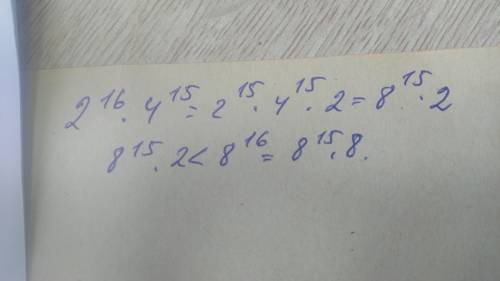 2^16 · 4^15 = 2^15 · 4^15 · 2 = 8^15 · 2
8^15 · 2 < 8^16 = 8^15 · 8.